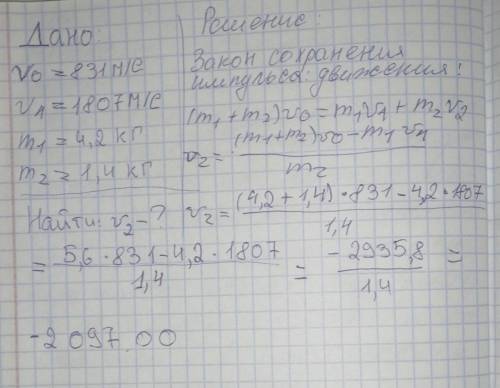 Дано:
v0 = 831 м/с
v1 = 1807 м/с
m1 = 4,2 кг
m2 = 1,4 кг
Найти: v2 - ?
Решение:
Закон сохранения
импульса движения:
(m1 + m2)v0 = m1v1 + m2v2
v2 = (m1+m2)v0 - m1v1 / m2
v2 = (4,2 + 1,4) · 831 - 4,2 · 1807 / 1,4
= 5,6 · 831 - 4,2 · 1807 / 1,4 = -2935,8 / 1,4 =
-2097.00